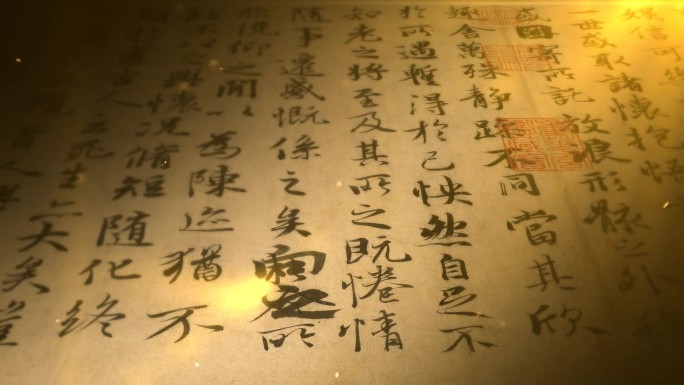 娱信可
一世或取諸懷抱悟
或因寄所託放浪形骸之外
趣舍萬殊静躁不同當其欣
於所遇蹔得於己怏然自足不
知老之將至及其所之既惓情
隨事遷感慨係之矣向之所
俛仰之間以為陳迹猶不
之興懷況脩短隨化終
人云死生亦大矣豈